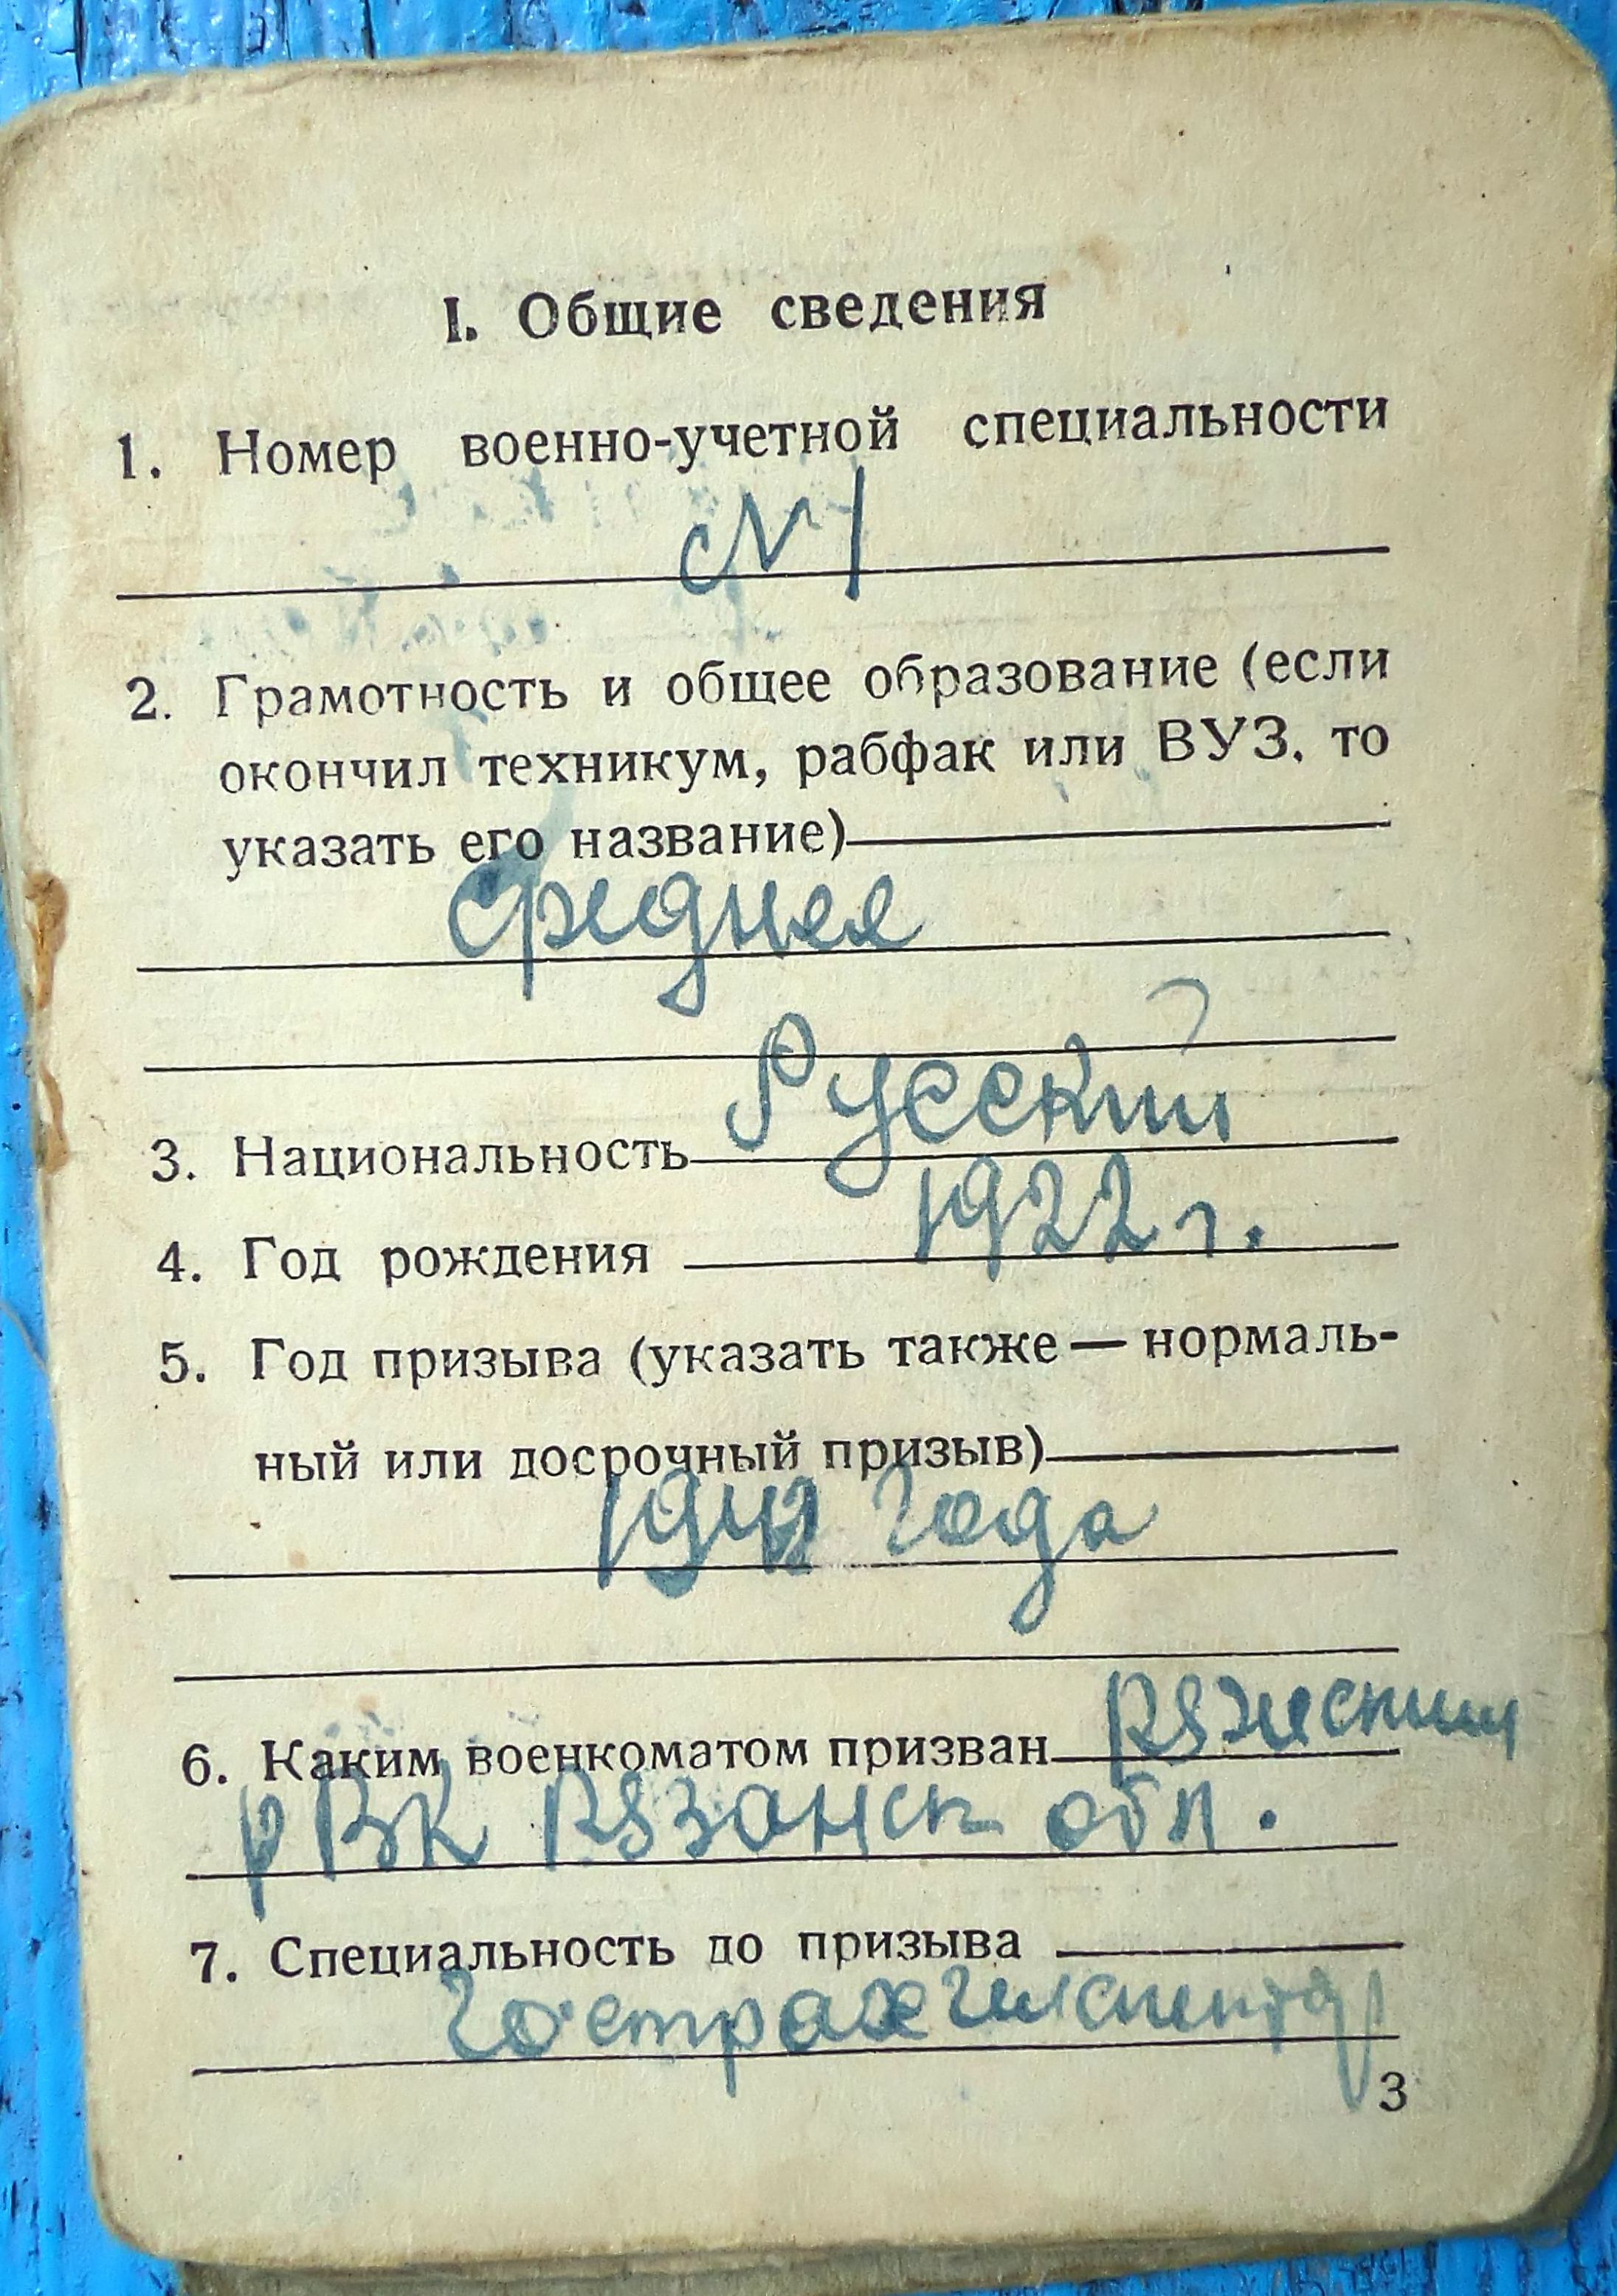 I. Общие сведения
1. Номер военно-учетной специальности
№1
2. Грамотность и общее образование (если
окончил техникум, рабфак или ВУЗ, то
указать его название)
Среднее
Русский
3. Национальность
1922 г.
4. Год рождения
5. Год призыва (указать также — нормаль-
ный или досрочный призыв)
года
6. Каким военкоматом призван Ряжским
РВК Рязанск обл.
7. Специальность до призыва
Госстрах
3